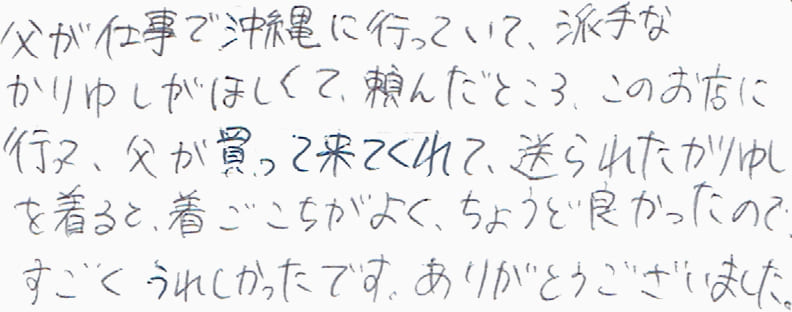 父が仕事で沖縄に行っていて、派手な
かりゆしがほしくて、頼んだところ、このお店に
行き、父が買って来てくれて、送られたかりゆし
を着ると、着ごこちがよく、ちょうど良かったので、
すごくうれしかったです。ありがとうございました。